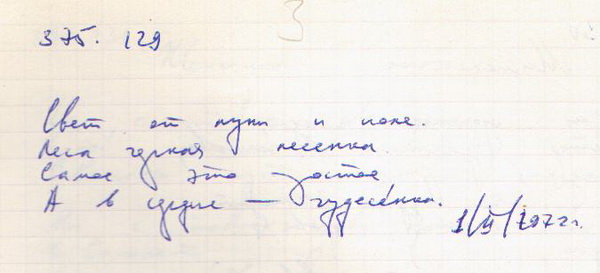 3
375. 129
Свет от луны и поле.
Леса черная лесенка.
Самое это простое
А в сердце — чудесенка.
1/II/1972 г.